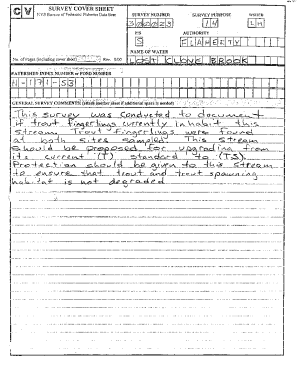 CV SURVEY COVER SHEET
SURVEY NUMBER
SURVEY PURPOSE
WATER
300023
14
LH
FS
AUTHORITY
5
FLAHERTY
No. of pages (including cover sheet)
NAME OF WATER
LOST CLOVE BROOK
WATERSHED INDEX NUMBER or POND NUMBER
H-171-53
GENERAL SURVEY COMMENTS (attach another sheet if additional space is needed)
This survey was conducted to document
if trout fingerlings currently inhabit this
stream. Trout fingerlings were found
at both sites sampled. This stream
should be proposed for upgrading from
its current (T) standard to (TS).
Protection should be given to this stream
to ensure that trout and trout spawning
habitat is not degraded